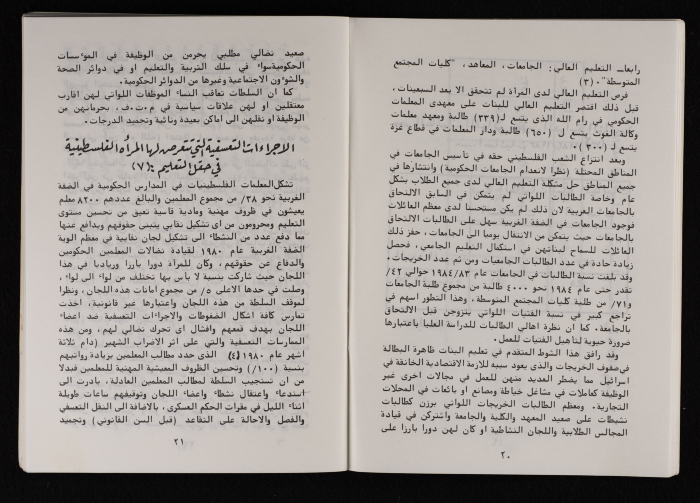 رابعا_ التعليم العالي: الجامعات، المعاهد، "كليات المجتمع
المتوسطة". (٣)
فرص التعليم العالي لدى المرأة لم تتحقق الا بعد السبعينات،
قبل ذلك اقتصر التعليم العالي للبنات على معهدي المعلمات
الحكومي في رام الله الذي يتسع لـ(٣٣٩) طالبة ومعهد معلمات
وكالة الغوث يتسع لـ (٦٥٠) طالبة ودار المعلمات في قطاع غزة
يتسع لـ (٣٠٠).
وبعد انتزاع الشعب الفلسطيني حقه في تأسيس الجامعات في
المناطق المحتلة (نظرا لانعدام الجامعات الحكومية) وانتشارها في
جميع المناطق حل مشكلة التعليم العالي لدى جميع الطلاب بشكل
عام وخاصة الطالبات اللواتي لم يتمكن في السابق الالتحاق
بالجامعات الغربية لان ذلك لم يكن مستحبا لدى معظم العائلات
فوجود الجامعات في الضفة الغربية سهل على الطالبات الالتحاق
بالجامعات حيث يتمكن من الانتقال يوميا الى الجامعات، حفز ذلك
العائلات للسماح لبناتهن في استكمال التعليم الجامعي، فحصل
زيادة حادة في عدد الطالبات الجامعيات ومن ثم عدد الخريجات.
وقد بلغت نسبة الطالبات في الجامعات عام ١٩٨٤/٨٣ حوالي ٤٢/
تقدر حتى عام ١٩٨٤ نحو ٤٠٠٠ طالبة من مجموع طلبة الجامعات
و٧١/ من طلبة كليات المجتمع المتوسطة، وهذا التطور اسهم في
تراجع كبير في نسبة الفتيات اللواتي يتزوجن قبل الالتحاق
بالجامعة. كما ان نظرة اهالي الطالبات للدراسة العليا باعتبارها
ضرورة حيوية لتاهيل الفتيات للعمل.
وقد رافق هذا الشوط المتقدم في تعليم البنات ظاهرة البطالة
في صفوف الخريجات والذي يعود سببه للازمة الاقتصادية الخانقة في
اسرائيل مما يضطر العديد منهن للعمل في مجالات اخرى غير
الوظيفة كاملات في مشاغل خياطة ومصانع او بائعات في المحلات
التجارية. ومعظم الطالبات الخريجات اللواتي برزن كطالبات
نشيطات على صعيد المعهد والكلية والجامعة واشتركن في قيادة
المجالس الطلابية واللجان النشاطية او كان لهن دورا بارزا على
٢٠
صعيد نضالي مطلبي يحرمن من الوظيفة في المؤسسات
الحكومية سواء في سلك التربية والتعليم او في دوائر الصحة
والشؤون الاجتماعية وغيرها من الدوائر الحكومية.
كما ان السلطات تعاقب النساء الموظفات اللواتي لهن اقارب
معتقلين او لهن علاقات سياسية في م.ت.ف، بحرمانهن من
الوظيفة او نقلهن الى اماكن بعيدة ونائية وتجميد الدرجات.
الاجراءات التعسفية التي تتعرض لها المرأة الفلسطينية
في حقل التعليم: (٧)
تشكل المعلمات الفلسطينيات في المدارس الحكومية في الضفة
الغربية نحو ٣٨/ من مجموع المعلمين والبالغ عددهم ٨٢٠٠ معلم
يعيشون في ظروف مهنية ومادية قاسية تعيق من تحسين مستوى
التعليم ومحرومون من اى تشكيل نقابي يتبنى حقوقهم ويدافع عنها
مما دفع عدد من النشطاء الى تشكيل لجان نقابية في معظم الوية
الضفة الغربية عام ١٩٨٠ لقيادة نضالات المعلمين الحكومين
والدفاع عن حقوقهم، وكان للمرأة دورا بارزا ورياديا في هذا
اللجان حيث شاركت بنسبة لا باس بها تختلف من لواء الى لواء،
وصلت في حدها الاعلى ٥/ من مجموع امانات هذه اللجان، ونظرا
لموقف السلطة من هذه اللجان واعتبارها غير قانونية، اخذت
تمارس كافة اشكال الضغوطات والاجراءات التعسفية ضد اعضاء
اللجان بهدف قمعهم وافشال اى تحرك نضالي لهم، ومن هذه
الممارسات التعسفية والتي على اثر الاضراب الشهير (دام ثلاثة
اشهر عام ١٩٨٠ (٤) الذى حدد مطالب المعلمين بزيادة رواتبهم
بنسبة (١٠٠/) وتحسين الظروف المعيشية المهنية للمعلمين فبدلا
من ان تستجيب السلطة لمطالب المعلمين العادلة، بادرت الى
استدعاء واعتقال نشطاء واعضاء اللجان وتوقيفهم ساعات طويلة
اثناء الليل في مقرات الحكم العسكرى، بالاضافة الى النقل التعسفي
والفصل والاحالة على التقاعد (قبل السن القانوني) وتجميد
٢١